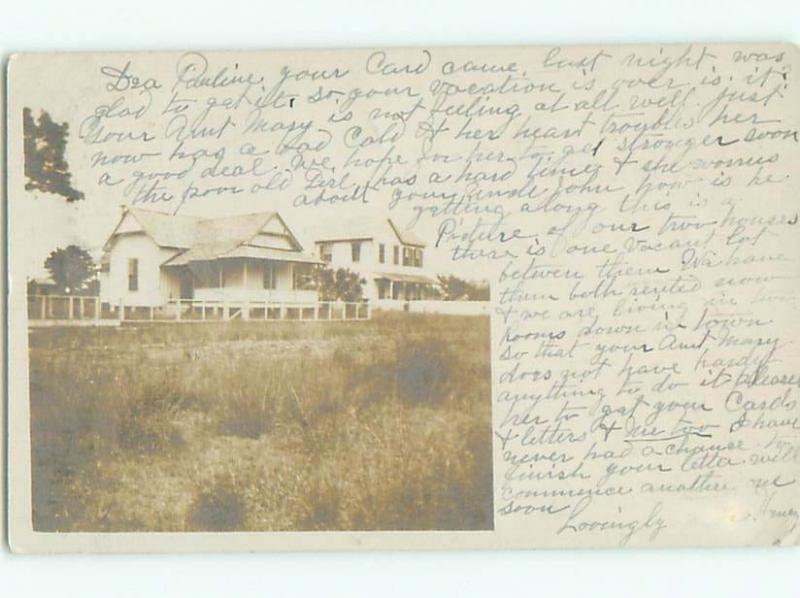 Dea Pauline your Card came last night was
glad to get it. So your vacation is over is it?
Your Aunt Mary is not feeling at all well. Just
now has a bad Cold & her heart troubles her
a good deal. We hope for her to get stronger soon
the poor old Girl, has a hard time & she worries
about your Uncle John how is he
getting along this is a
Picture of our two houses
there is one vacant lot
between them We have
them both rented now
& we are living in two
Rooms down in town
so that your Aunt Mary
does not have hardly
anything to do it pleases
her to get your Cards
& letters & me too I have
never had a chance to
finish your letter will
commence another one
soon Lovingly